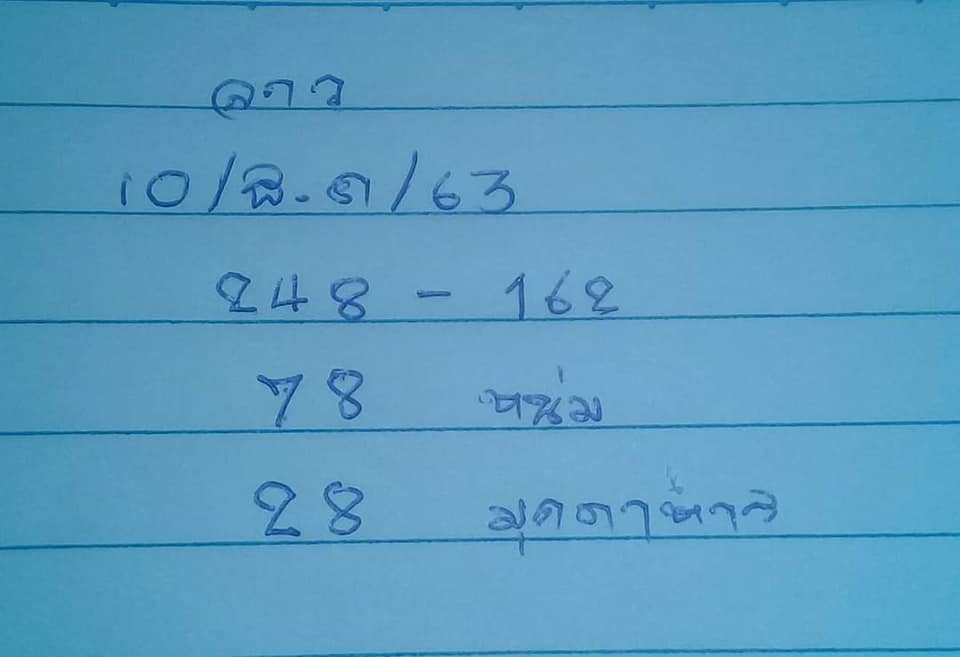 ลาว
10/ส.ค/63
248 - 162
78 หนุ่ม
28 มุกดาหาร